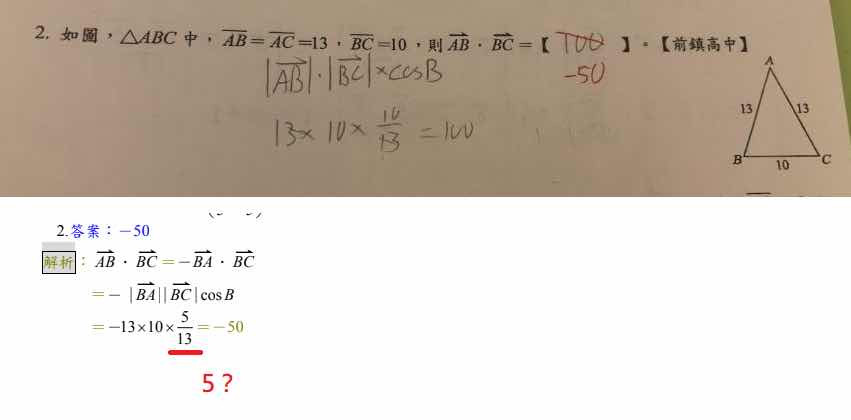 2. 如圖，△ABC 中，AB=AC=13，BC=10，則 AB · BC =【 100 】。【前鎮高中】
-50
|AB|·|BC|×cosB
13×10×10/13=100
A
13
13
B
10
C
2.答案：−50
解析：AB · BC =−BA · BC
=− |BA||BC|cosB
=−13×10×5/13=−50
5？